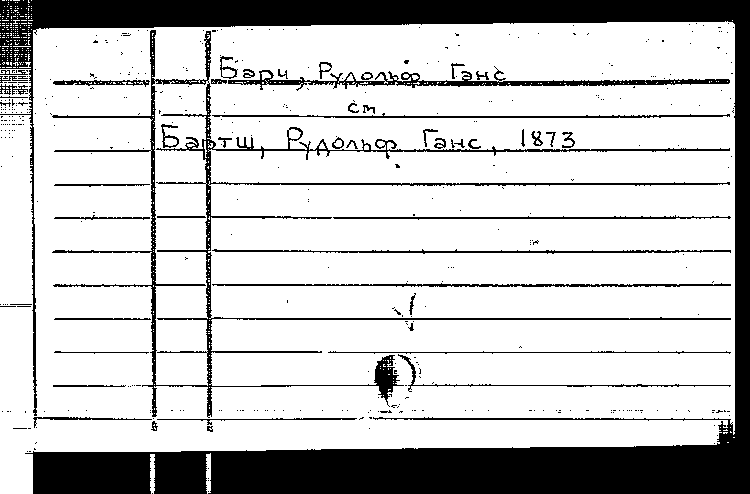 Барч, Рудольф Ганс
см.
Бартш, Рудольф Ганс, 1873